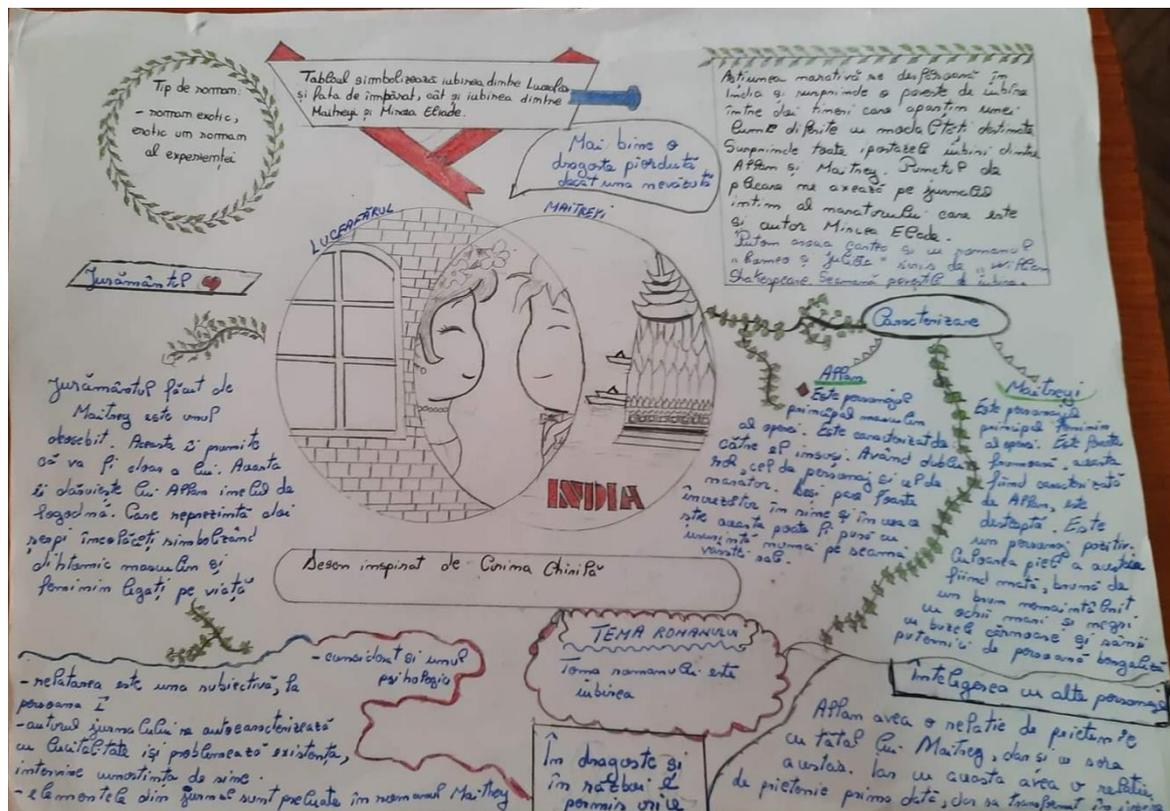 Tip de roman:
- roman exotic,
erotic um roman
al experienței
Tabloul simbolizează iubirea dintre Luceafăr
și fata de împărat, cât și iubirea dintre
Maitreyi și Mircea Eliade.
Mai bine o
dragoste pierdută
decât una nevăzută
Acțiunea narativă se desfășoară în
India și surprinde o poveste de iubire
între doi tineri care aparțin unei
lumi diferite cu modalități distincte
Surprinde toate ipostazele iubirii dintre
Allan și Maitrey. Punctul de
plecare ne axează pe jurnalul
intim al naratorului care este
și autor Mircea Eliade.
Putem asocia cartea și cu romanul
"Romeo și Julieta" scris de William
Shakespeare. Seamănă poveștile de iubire.
LUCEAFĂRUL
MAITREYI
INDIA
Jurământul
Jurământul făcut de
Maitrey este unul
deosebit. Aceasta îi promite
că va fi doar a lui. Aceasta
îi dăruiește lui Allan inelul de
logodnă. Care reprezintă doi
șerpi încolăciți simbolizând
masculin și
feminin legați pe viață
Caracterizare
Allan
Este personajul
principal masculin
al operei. Este caracterizat de
către el însuși. Având dublu
rol, cel de personaj și cel de
narator. Deși pare foarte
încrezător în sine și în ceea ce
este aceasta poate fi pusă cu
numai pe seama
vârstei sale.
Maitreyi
Este personajul
principal feminin
al operei. Este foarte
frumoasă, aceasta
fiind caracterizată
de Allan, este
deșteaptă. Este
un personaj pozitiv.
Culoarea pielii a acesteia
fiind mată, brună de
un brun nemaiîntâlnit
cu ochii mari și negri
cu buzele cărnoase și sânii
puternici de persoană bengaleză
Desen inspirat de Corina Chirilă
TEMA ROMANULUI
Tema romanului este
iubirea
- considerat și unul
psihologic
- relatarea este una subiectivă, la
persoana I
- autorul jurnalului se autocaracterizează
cu luciditate își problemează existența,
intervine cunoștința de sine.
- elementele din jurnal sunt preluate în romanul Maitrey
În dragoste și
în război e
permis orice
Înțelegerea cu alte personaje
Allan avea o relație de prietenie
cu tatăl lui Maitrey, dar și cu sora
acestora. Iar cu aceasta avea o relație
de prietenie prima dată, dar sa transformat în